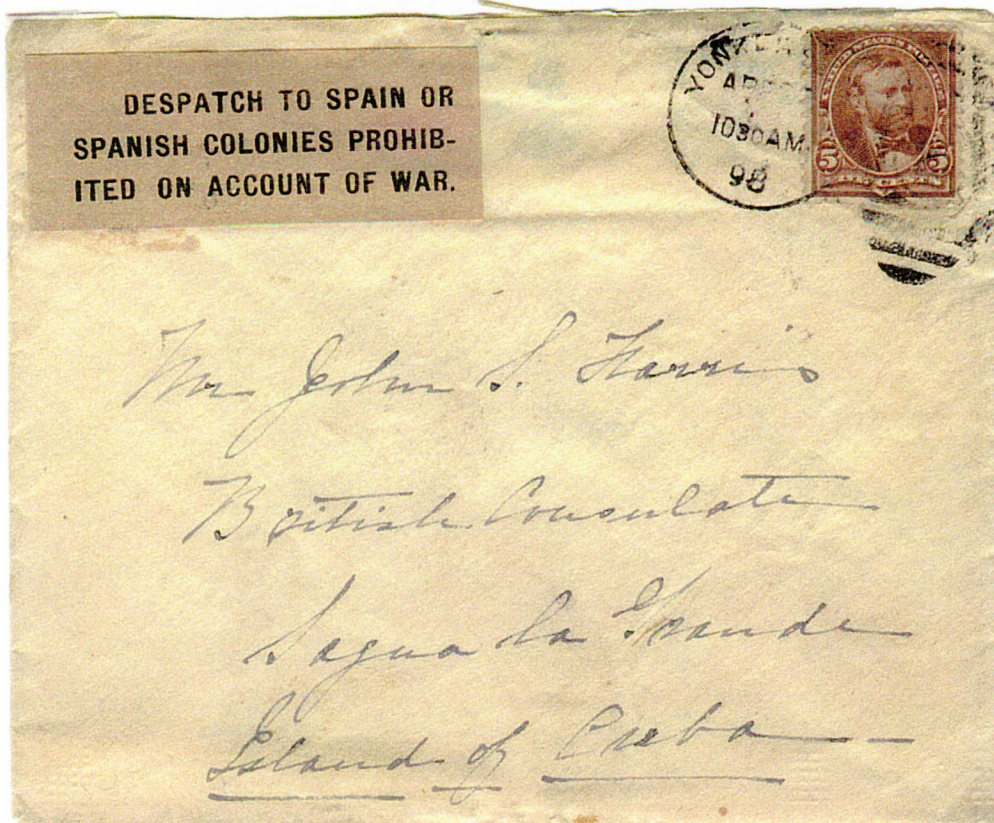 DESPATCH TO SPAIN OR
SPANISH COLONIES PROHIB-
ITED ON ACCOUNT OF WAR.
YONKERS
10 30 AM
98
5 5
Mr John S. Harris
British Consulate
Sagua la Grande
Island of Cuba